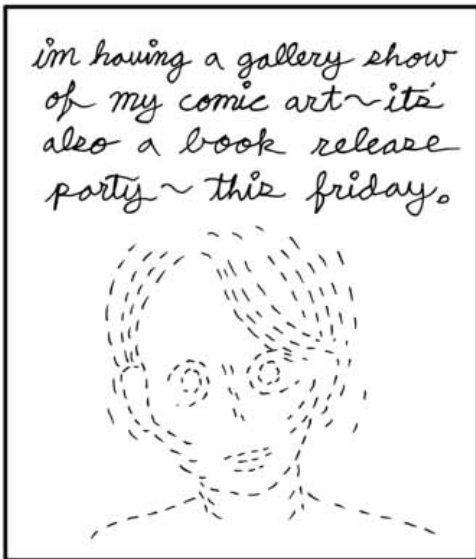 im having a gallery show
of my comic art~it's
also a book release
party~ this friday.